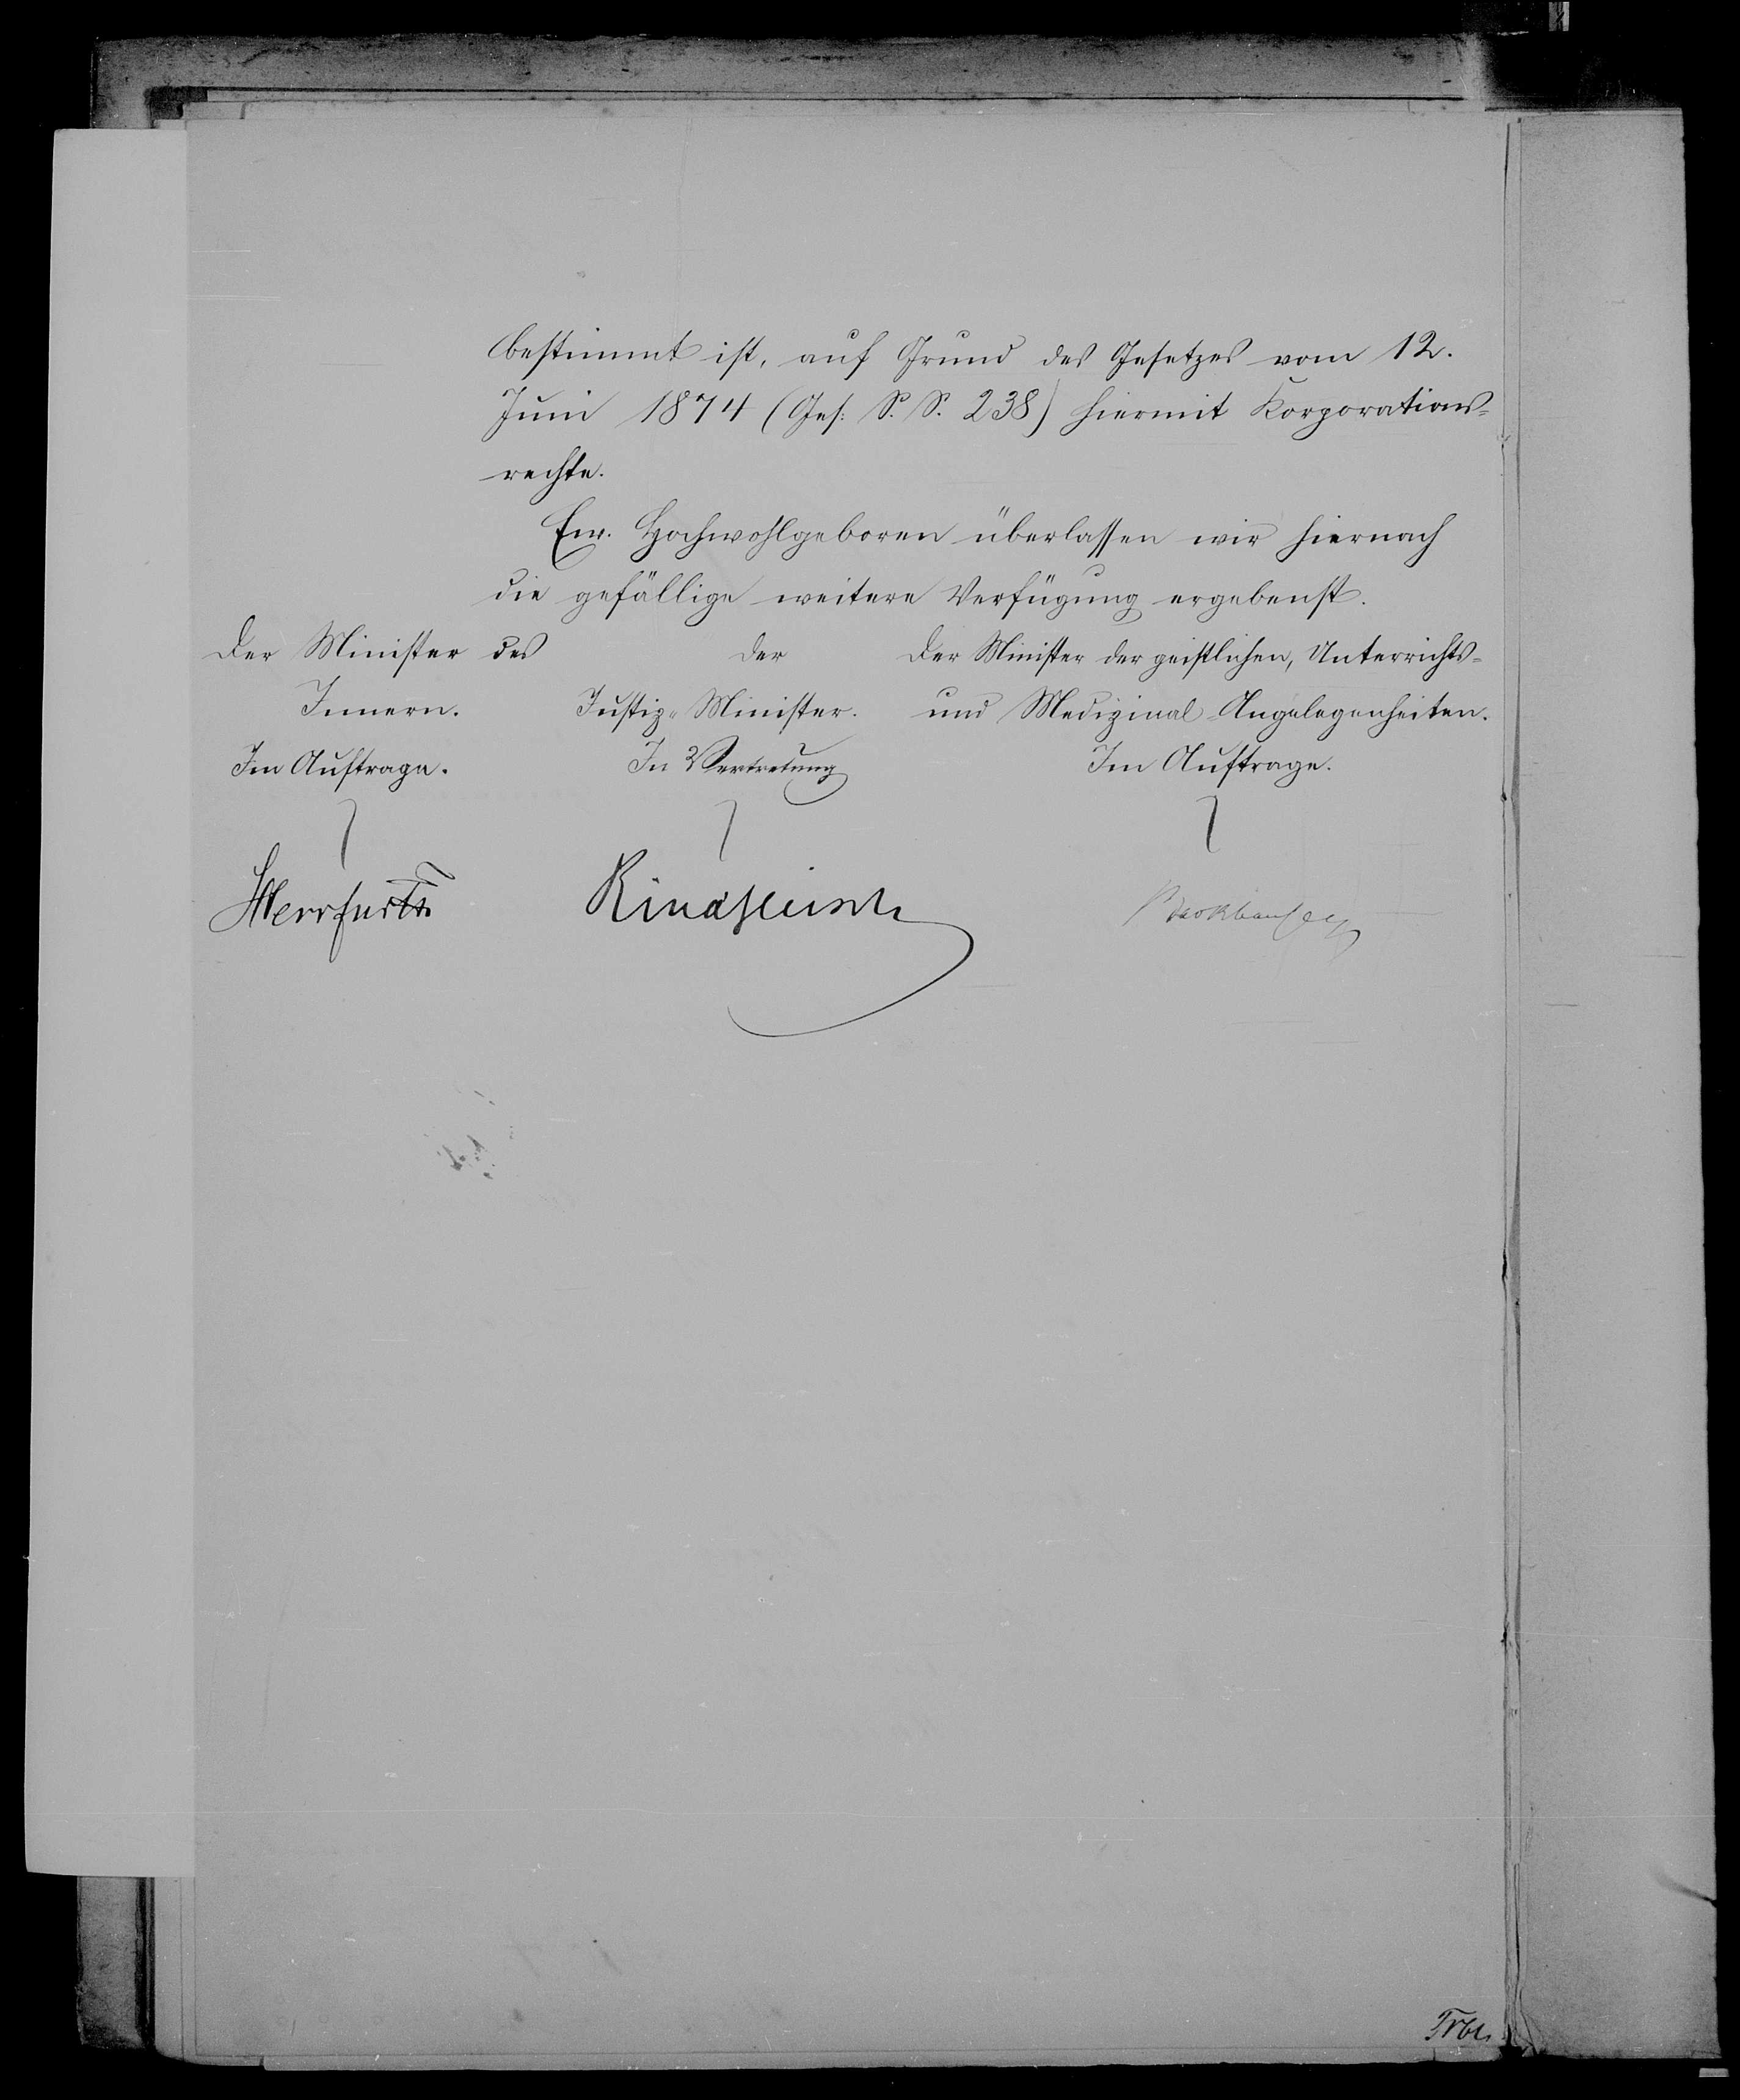 bestimmt ist, auf Grund des Gesetzes vom 12.
Juni 1874 (Ges: S. S. 238) hiermit Korporations-
rechte.
Ew. Hochwohlgeboren überlassen wir hiernach
die gefällige weitere Verfügung ergebenst.
Der Minister des
Innern.
Im Auftrage.
Herrfurth
Der
Justiz-Minister.
In Vertretung
Rindfleisch
Der Minister der geistlichen, Unterrichts-
und Medizinal-Angelegenheiten.
Im Auftrage.
Barkhausen